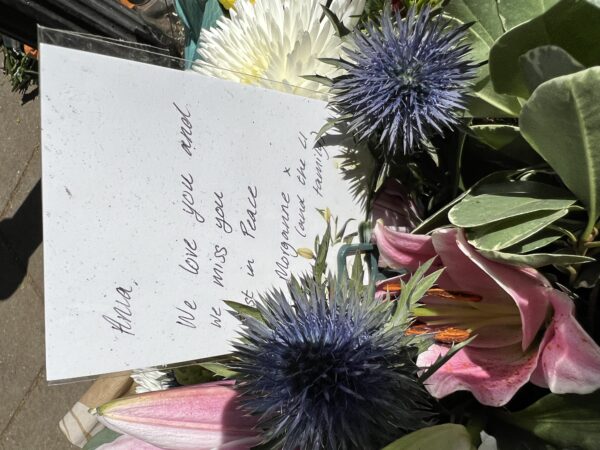 Ania,
We love you and
we miss you
st in Peace
Morganne x
(and the 4
family